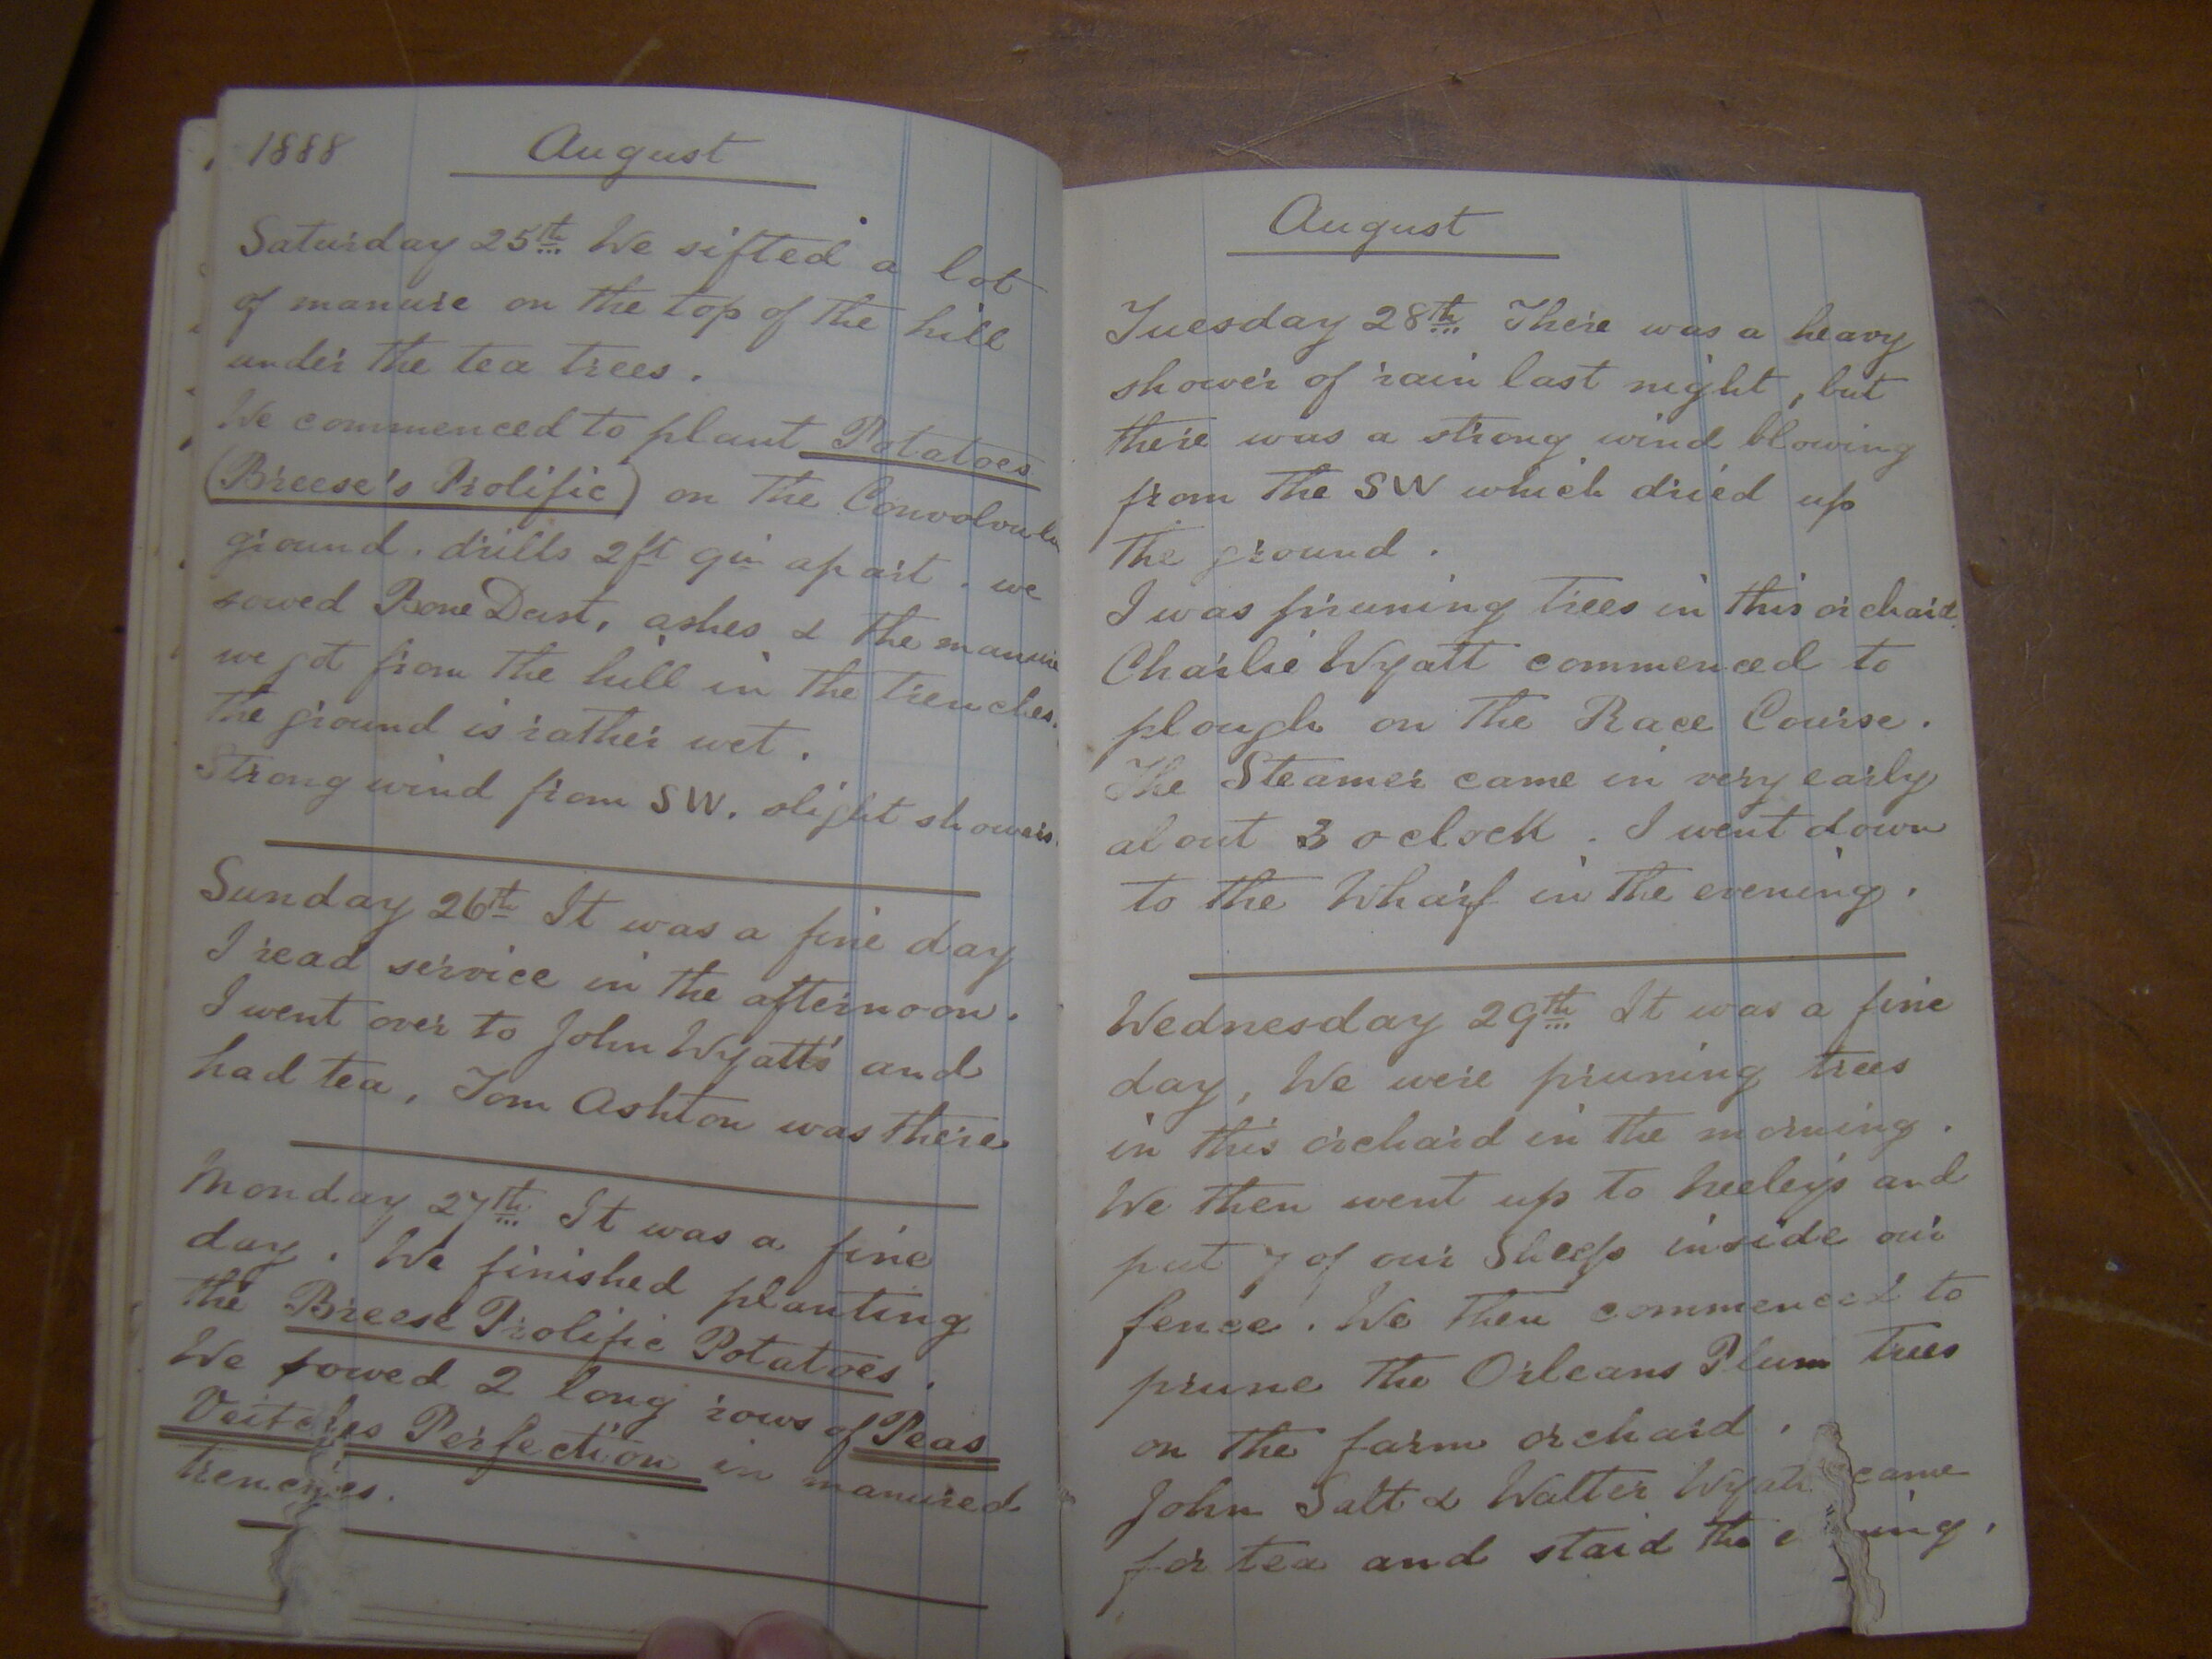 1888 August
Saturday 25th We sifted a lot
of manure on the top of the hill
under the tea trees.
We commenced to plant Potatoes
(Breese's Prolific) on the
ground. drills 2ft 9in apart. we
sowed Bone Dust, ashes & the manure
we got from the hill in the trenches.
the ground is rather wet.
Strong wind from SW. slight showers.
Sunday 26th It was a fine day
I read service in the afternoon.
I went over to John Wyatt's and
had tea, Tom Ashton was there
Monday 27th It was a fine
day. We finished planting
the Breese Prolific Potatoes.
We sowed 2 long rows of Peas
Perfection in manured
trenches.
August
Tuesday 28th There was a heavy
shower of rain last night, but
there was a strong wind blowing
from the SW which dried up
the ground.
I was pruning trees in this orchard.
Charlie Wyatt commenced to
plough on the Race Course.
The Steamer came in very early
about 3 oclock. I went down
to the Wharf in the evening.
Wednesday 29th It was a fine
day, We were pruning trees
in this orchard in the morning.
We then went up to heeley's and
put 7 of our Sheep inside our
fence. We then commenced to
prune the Orleans Plum trees
on the farm orchard.
John Salt & Walter Wyatt came
for tea and staid the